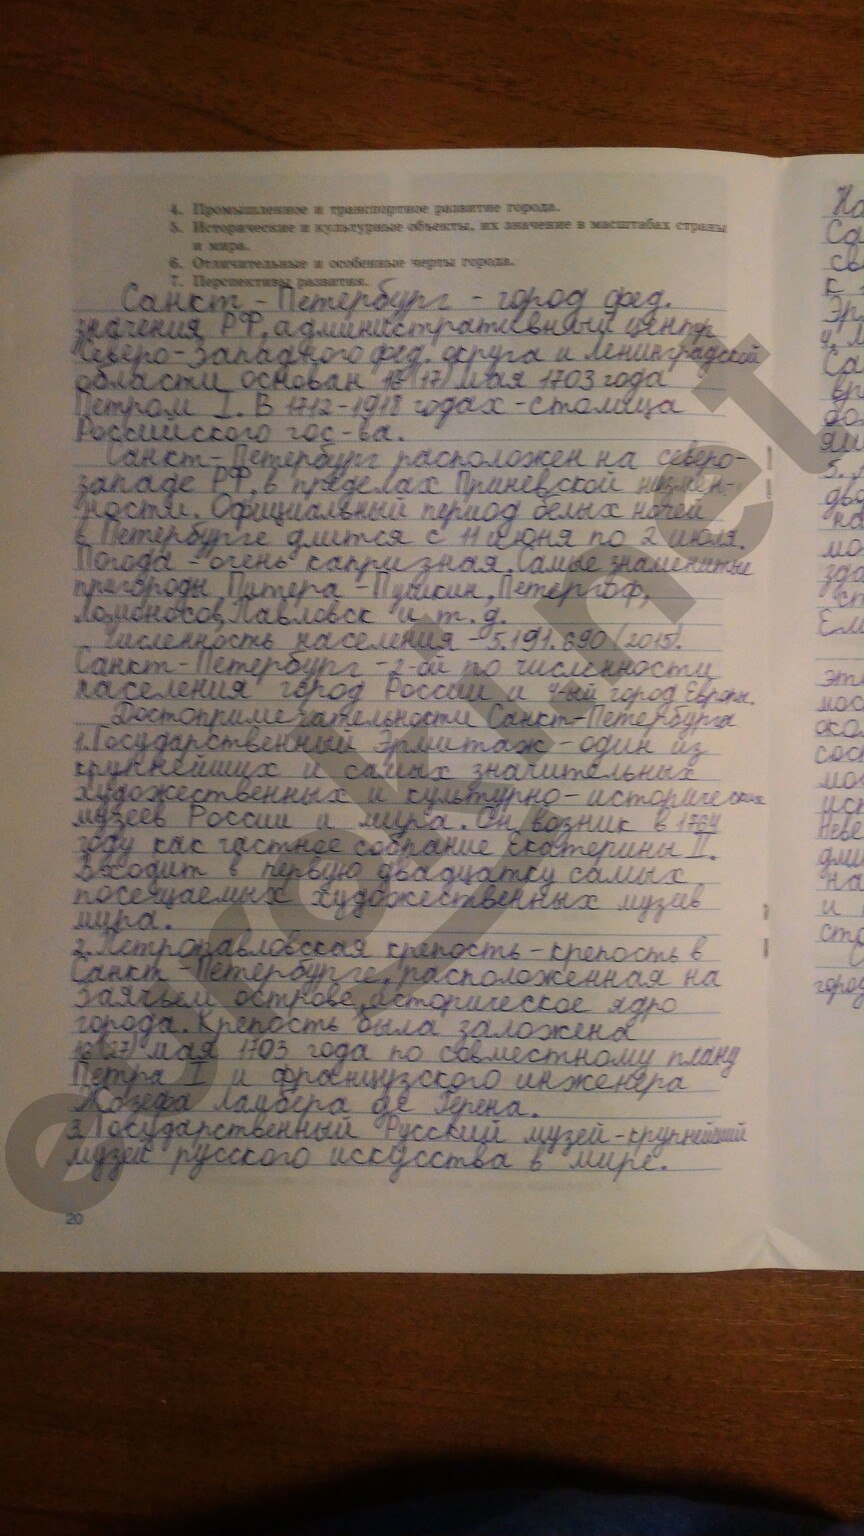 4. Промышленное и транспортное развитие города.
5. Исторические и культурные объекты, их значение в масштабах страны
и мира.
6. Отличительные и особенные черты города.
7. Перспективы развития.
Санкт-Петербург - город фед.
значения РФ, административный центр
Северо-Западного фед. округа и Ленинградской
области, основан 16(17) мая 1703 года
Петром I. В 1712-1918 годах - столица
Российского гос-ва.
Санкт-Петербург расположен на северо-
западе РФ, в пределах Приневской низмен-
ности. Официальный период белых ночей
в Петербурге длится с 11 июня по 2 июля.
Погода - очень капризная. Самые знаменитые
пригороды Питера - Пушкин, Петергоф,
Ломоносов, Павловск и т.д.
Численность населения - 5.191.690 (2015).
Санкт-Петербург - 2-ой по численности
населения город России и 4-ый город Европы.
Достопримечательности Санкт-Петербурга
1. Государственный Эрмитаж - один из
крупнейших и самых значительных
художественных и культурно-исторических
музеев России и мира. Он возник в 1764
году как частное собрание Екатерины II.
Входит в первую двадцатку самых
посещаемых художественных музеев
мира.
2. Петропавловская крепость - крепость в
Санкт-Петербурге, расположенная на
Заячьем острове, историческое ядро
города. Крепость была заложена
16(27) мая 1703 года по совместному плану
Петра I и французского инженера
Жозефа Ламбера де Герена.
3. Государственный Русский музей - крупнейший
музей русского искусства в мире.
20
egeknet